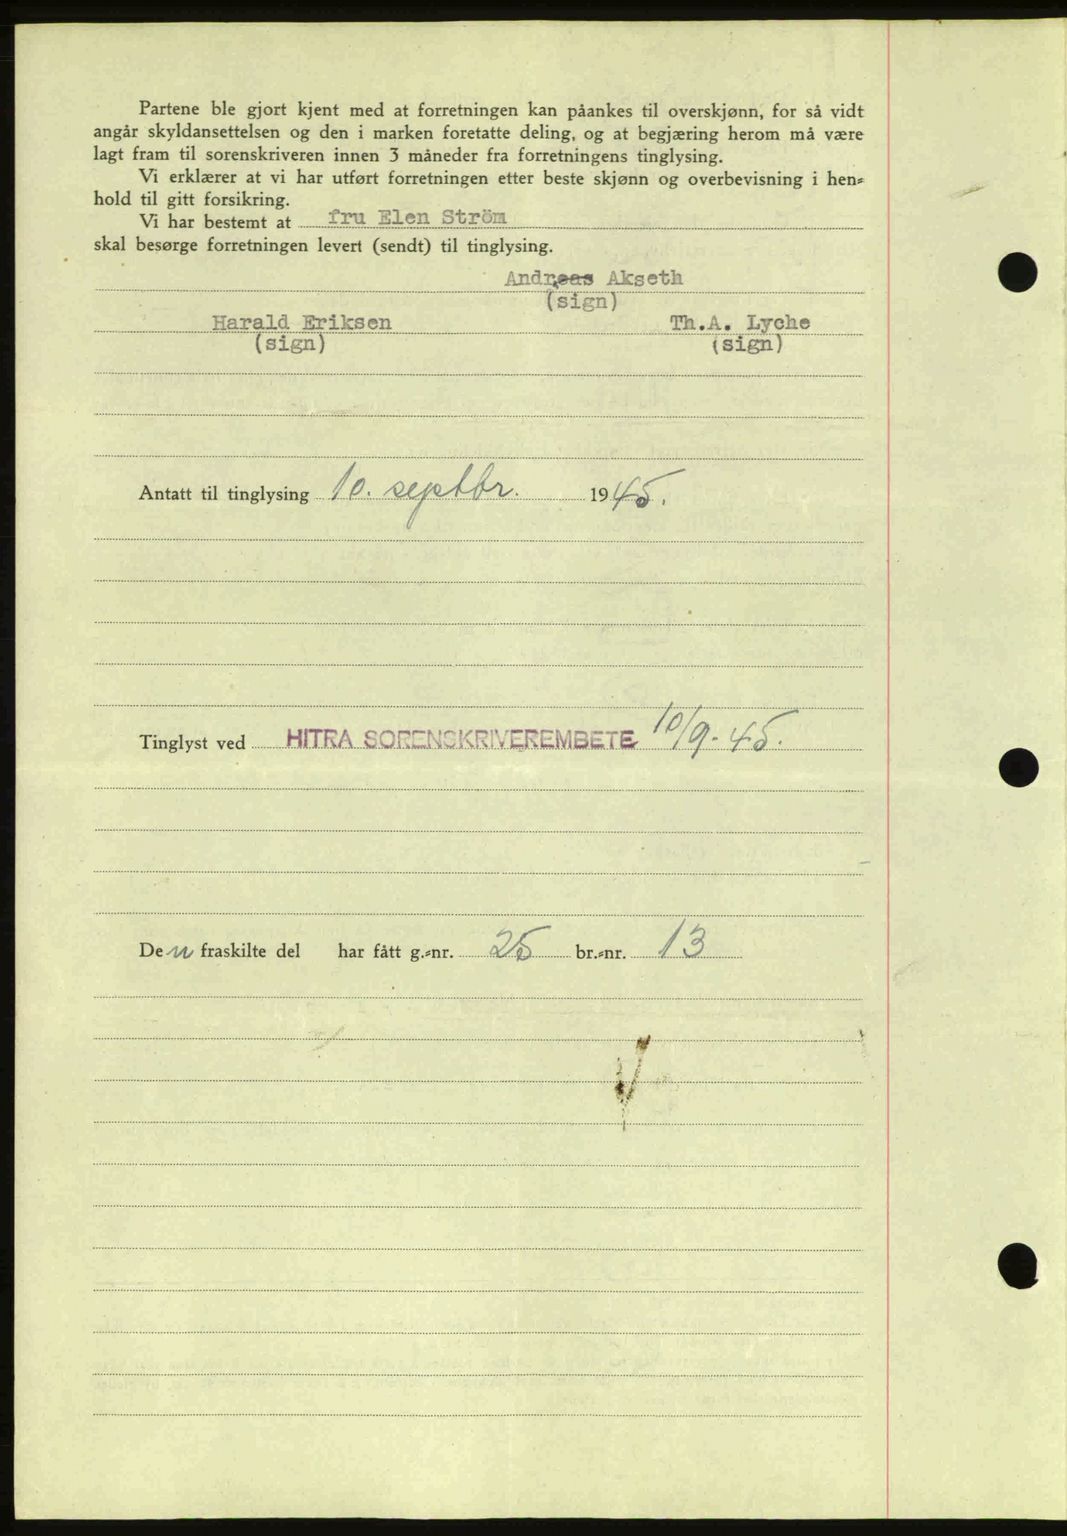 Partene ble gjort kjent med at forretningen kan påankes til overskjønn, for så vidt
angår skyldansettelsen og den i marken foretatte deling, og at begjæring herom må være
lagt fram til sorenskriveren innen 3 måneder fra forretningens tinglysing.
Vi erklærer at vi har utført forretningen etter beste skjønn og overbevisning i hen-
hold til gitt forsikring.
Vi har bestemt at fru Elen Ström
skal besørge forretningen levert (sendt) til tinglysing.
Andreas Akseth
(sign)
Harald Eriksen Th.A. Lyche
(sign) (sign)
Antatt til tinglysing 10. septbr. 1945.
Tinglyst ved HITRA SORENSKRIVEREMBETE 10/9-45.
Den fraskilte del har fått g.-nr. 25 br.-nr. 13